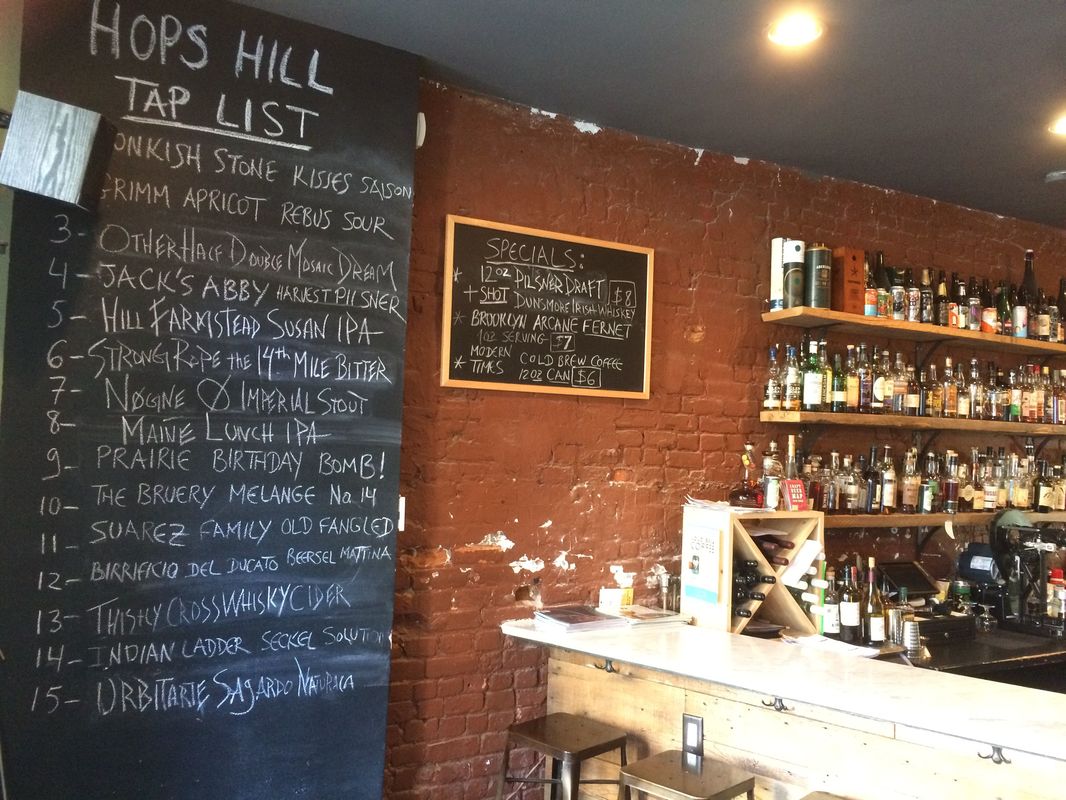 HOPS HILL
TAP LIST
ONKISH STONE KISSES SAISON
GRIMM APRICOT REBUS SOUR
3- OTHER HALF DOUBLE MOSAIC DREAM
4- JACK'S ABBY HARVEST PILSNER
5- HILL FARMSTEAD SUSAN IPA
6- STRONG ROPE THE 14th MILE BITTER
7- NØGINE Ø IMPERIAL STOUT
8- MAINE LUNCH IPA
9- PRAIRIE BIRTHDAY BOMB!
10- THE BRUERY MELANGE No. 14
11- SUAREZ FAMILY OLD FANGLED
12- BIRRIFICIO DEL DUCATO BEERSEL MATTINA
13- THISTLY CROSS WHISKY CIDER
14- INDIAN LADDER SECKEL SOLUTION
15- URBITARTE SAGARDO NATURACA
SPECIALS:
* 12 OZ PILSNER DRAFT
+ SHOT DUNSMORE IRISH WHISKEY $8
* BROOKLYN ARCANE FERNET
1 OZ SERVING $7
* MODERN TIMES COLD BREW COFFEE
12 OZ CAN $6